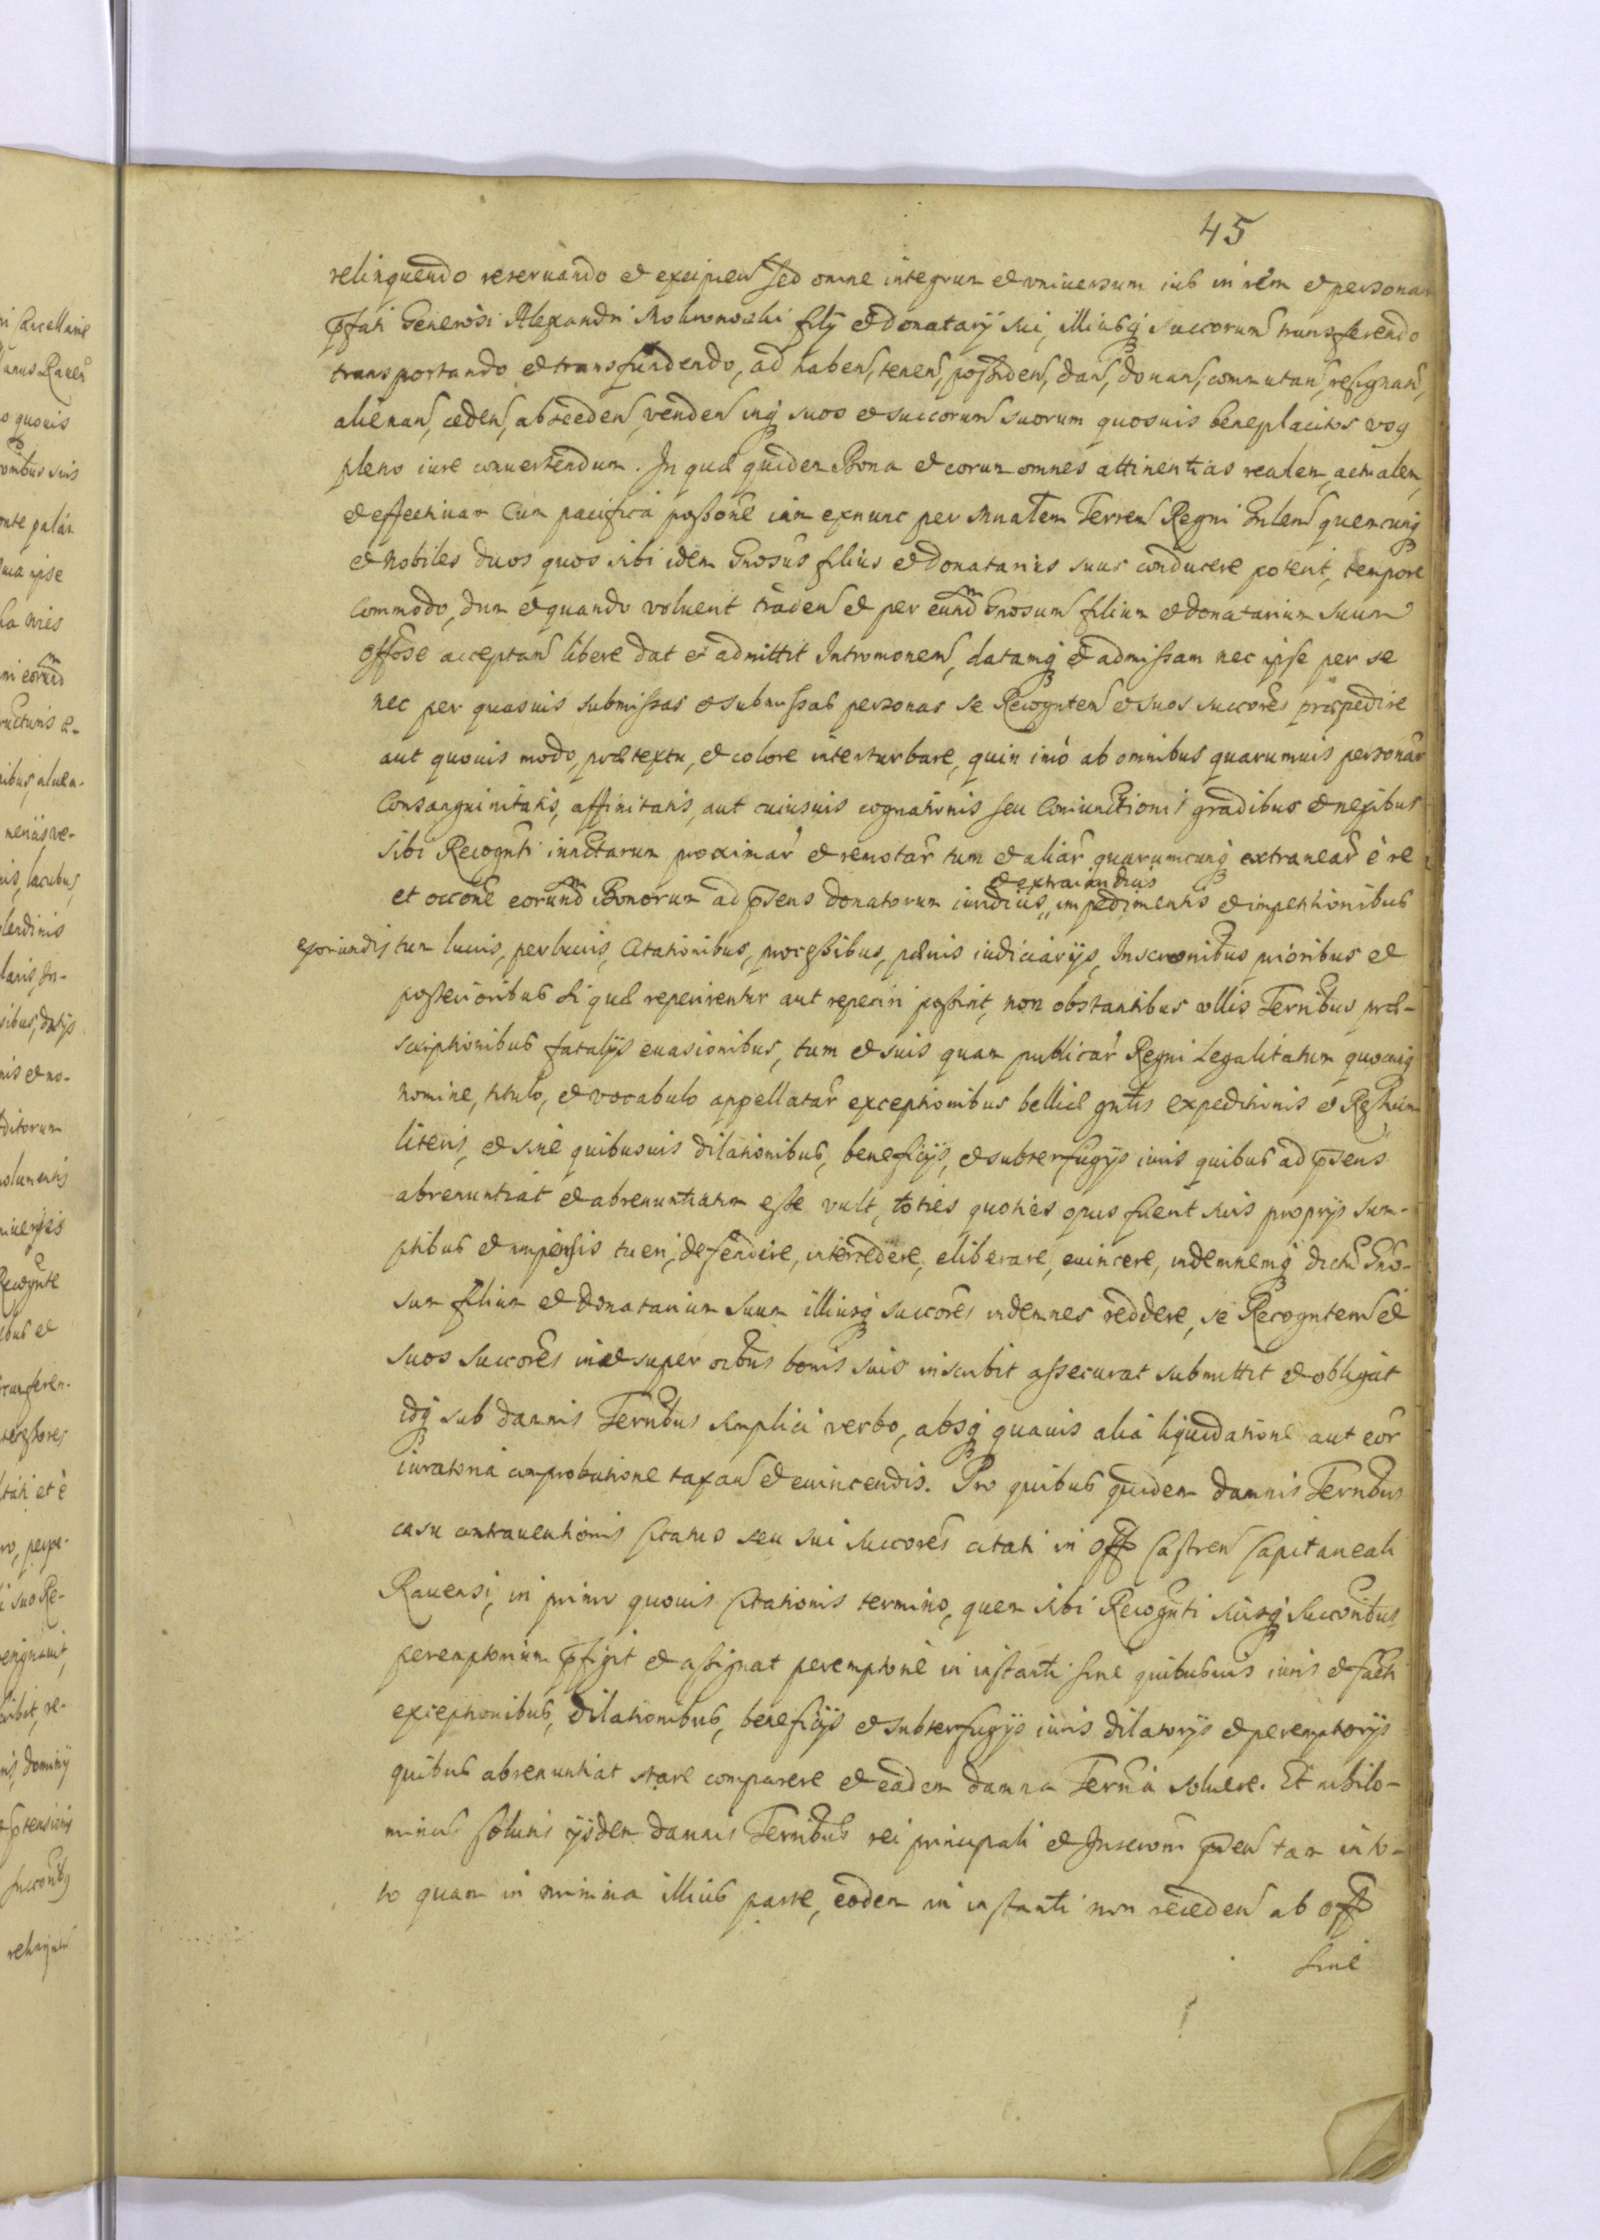 45
relinquendo reservando et excipien sed omne integrum et universum ius in rem et personam
pfati Generosi Alexandri Mokronoski filij et donatarij sui, illiusq succorum transferendo
transportando et transfundendo, ad haben, tenen, possiden, dan, donan, commutan, resignan,
alienan, ceden, abseeden, venden inq suos et succorum suorum quosuis beneplacitos vsq
pleno iure conuertendum. In quae quidem Bona et eorum omnes attinentias realem, actualem,
et effectiuam Cum pacifica possone iam exnunc per Mnalem Terren Regni Gnlem quemcunq
et Nobiles duos quos sibi idem Gnosus filius et donatarius suus conducere poterit, tempore
Commodo, dum et quando voluerit traden et per eund Gnosum filium et donatarium suum
offose acceptan libere dat et admittit Intromonem, datamq et admissam nec ipse per se
nec per quasuis submissas et subnissas personas se Recognten et suos succores praepedire
aut quouis modo, praetextu, et colore interturbare, quin imo ab omnibus quarumuis personar
Consanguinitatis, affinitatis, aut cuiusuis cognationis seu Coniunctionis gradibus et nexibus
sibi Recognti iunctarum proximar et remotar tum et aliar quarumcunq extranear e re
et occone eorund Bonorum ad psens donatorum iuridicis, impedimentis et impetitionibus
et extraiuridicis
exoriundis tum lucris, perlucris, Citationibus, processibus, paenis iudiciarijs, Inscronibus prioribus et
posterioribus si quae reperirentur aut reperiri possint, non obstantibus vllis Terribus prae-
scriptionibus fatalijs euasionibus, tum et suis quam publicar Regni Legalitatum quocunq
nomine, titulo, et vocabulo appellatar exceptionibus bellicae gnlis expeditionis et Regium
literis, et sine quibusuis dilationibus, beneficijs, et subterfugijs iuris quibus ad psens
abrenuntiat et abrenuntiatum esse vult, toties quoties opus fuerit suis proprijs sum-
ptibus et impensis tueri, defendere, intercedere, eliberare, euincere, indemnemq dictu Gno-
sum filium et donatarium suum illiusq succores indemnes reddere, se Recogntem et
suos succores in et super oibus bonis suis inscribit assecurat submittit et obligat
idq sub damnis Ternibus simplici verbo, absq quauis alia liquidatione aut eor
iuratoria comprobatione taxan et euincendis. Pro quibus quidem damnis Ternibus
casu contrauentionis Citatus seu sui succores citati in Off Castren Capitaneali
Rauensi, in primo quouis Citationis termino, quem sibi Recognti suisq succoribus
peremptorium pfigit et assignat peremptorie in instanti sine quibusuis iuris et facti
exceptionibus, dilationibus, beneficijs et subterfugijs iuris dilatorijs et peremptorijs
quibus abrenuntiat stare comparere et eadem damna Terna soluere. Et nihilo-
minus solutis ijsdem damnis Ternibus rei principali et Inscroni psen tam in to-
to quam in minima illius parte, eodem in instanti non receden ab off
sine